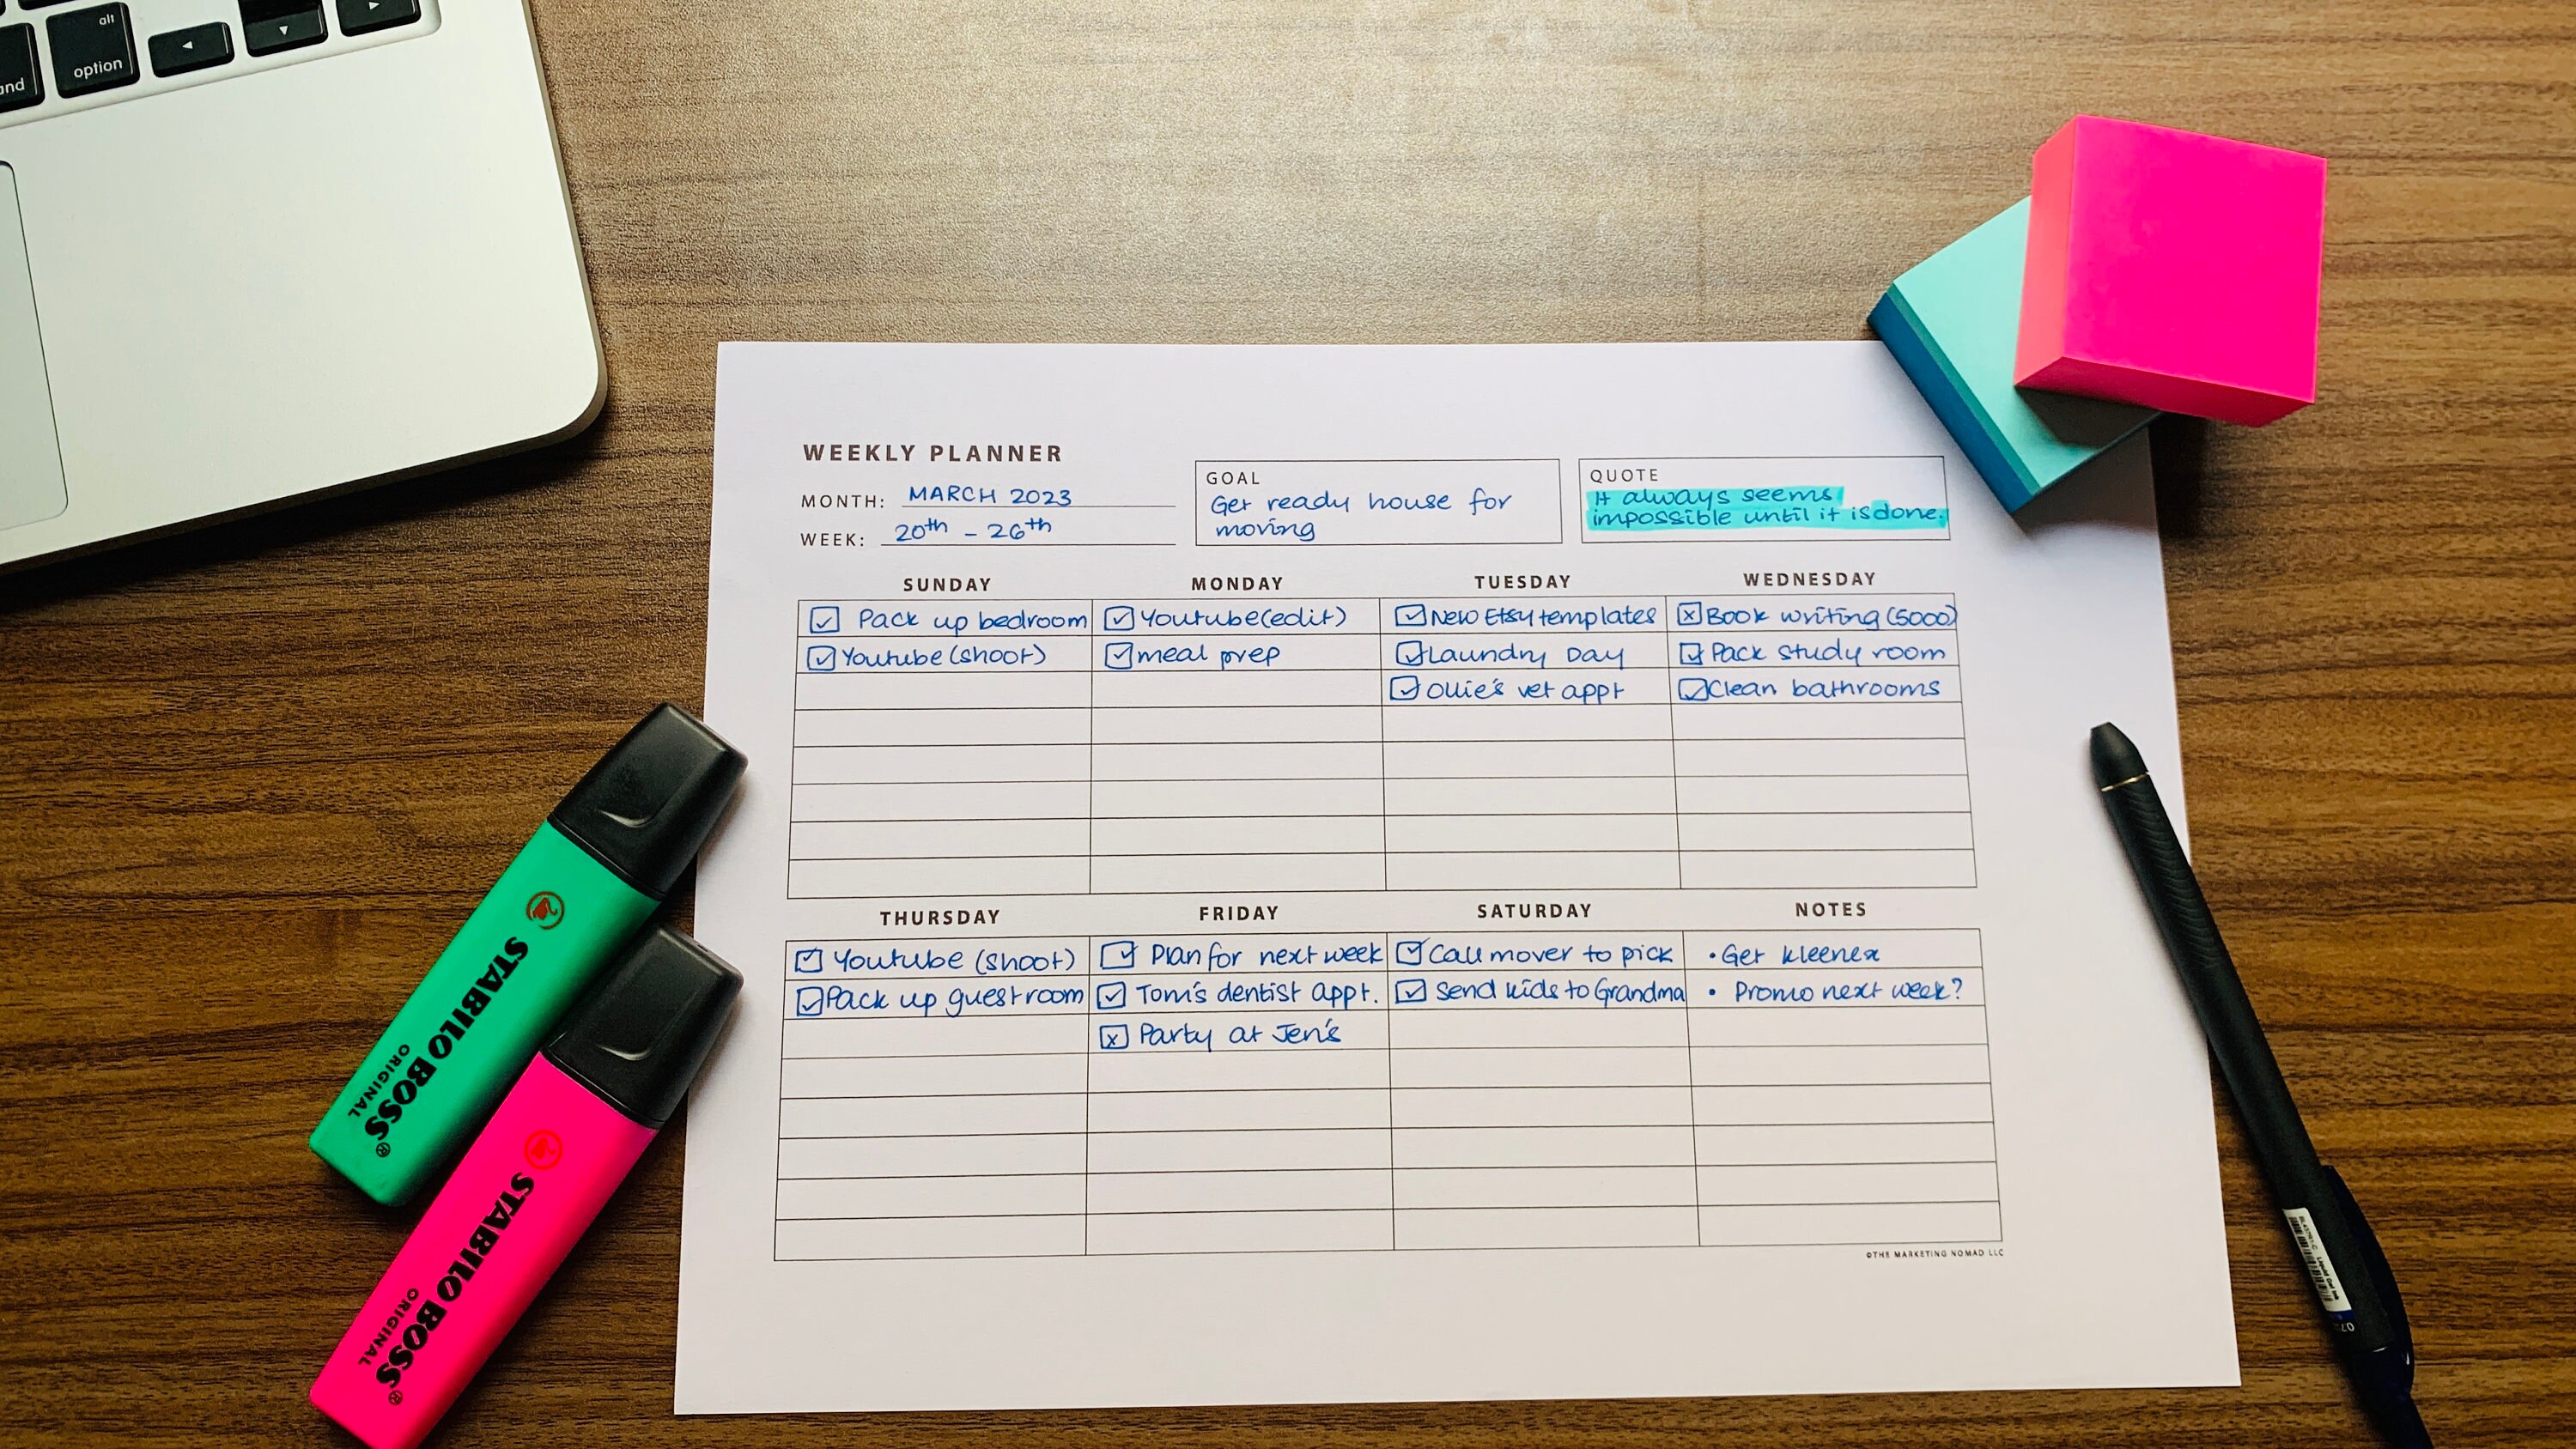 alt
option
and
WEEKLY PLANNER
MONTH: MARCH 2023
WEEK: 20th - 26th
GOAL
Get ready house for
moving
QUOTE
It always seems
impossible until it is done.
SUNDAY MONDAY TUESDAY WEDNESDAY
Pack up bedroom Youtube(edit) New Etsy templates Book writing (5000)
Youtube (shoot) meal prep Laundry Day Pack study room
Ollie's vet appt Clean bathrooms
THURSDAY FRIDAY SATURDAY NOTES
Youtube (shoot) Plan for next week Call mover to pick • Get kleenex
Pack up guest room Tom's dentist appt. Send kids to Grandma • Promo next week?
Party at Jen's
©THE MARKETING NOMAD LLC
STABILO BOSS®
ORIGINAL
STABILO BOSS®
ORIGINAL
Liquid Gel Ink